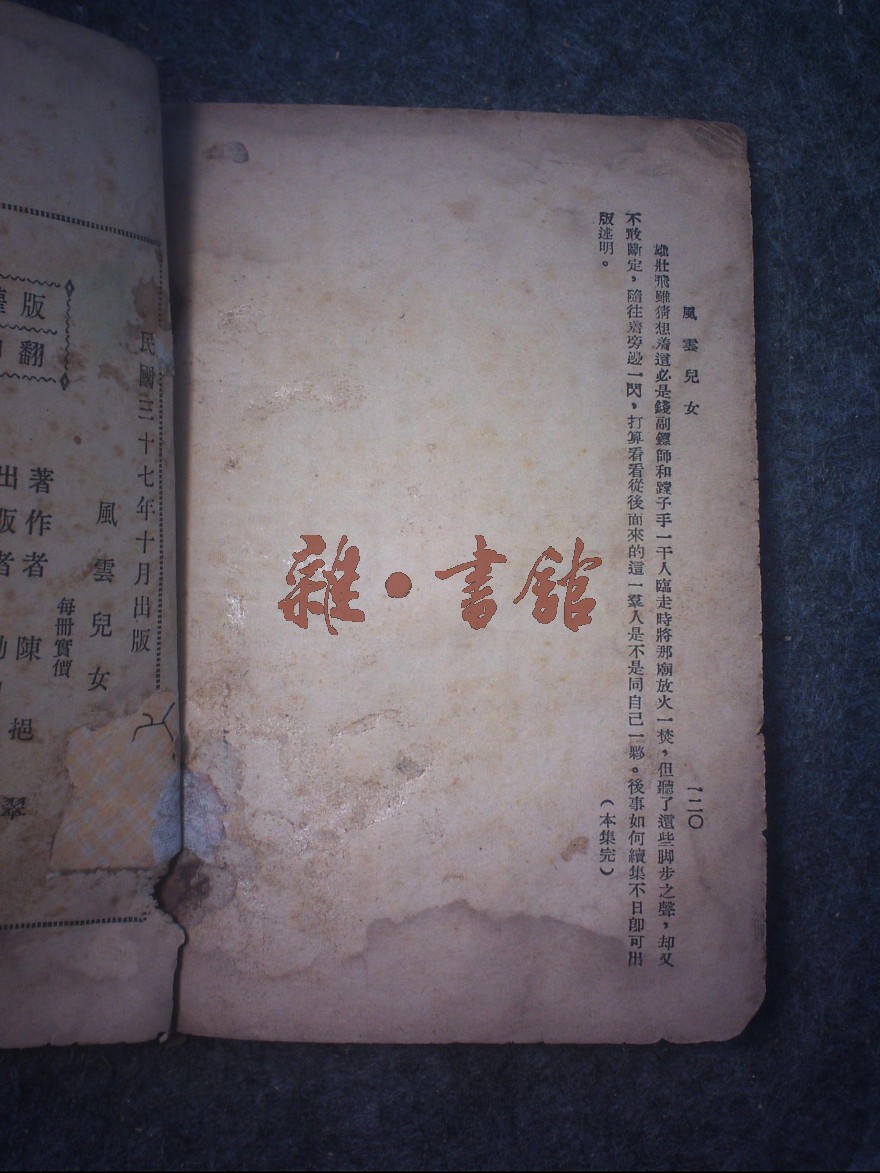 風雲兒女
一二〇
雄壯飛雖猜想着這必是錢副鏢師和蹚子手一干人臨走時將那廟放火一焚，但聽了這些脚步之聲，却又
不敢斷定，隨往着旁邊一閃，打算看看從後面來的這一羣人是不是同自己一夥。後事如何續集不日卽可出
版述明。
（本集完）
雜•書館
民國三十七年十月出版
風雲兒女
每冊實價
著作者 陳挹翠
出版者
版
翻